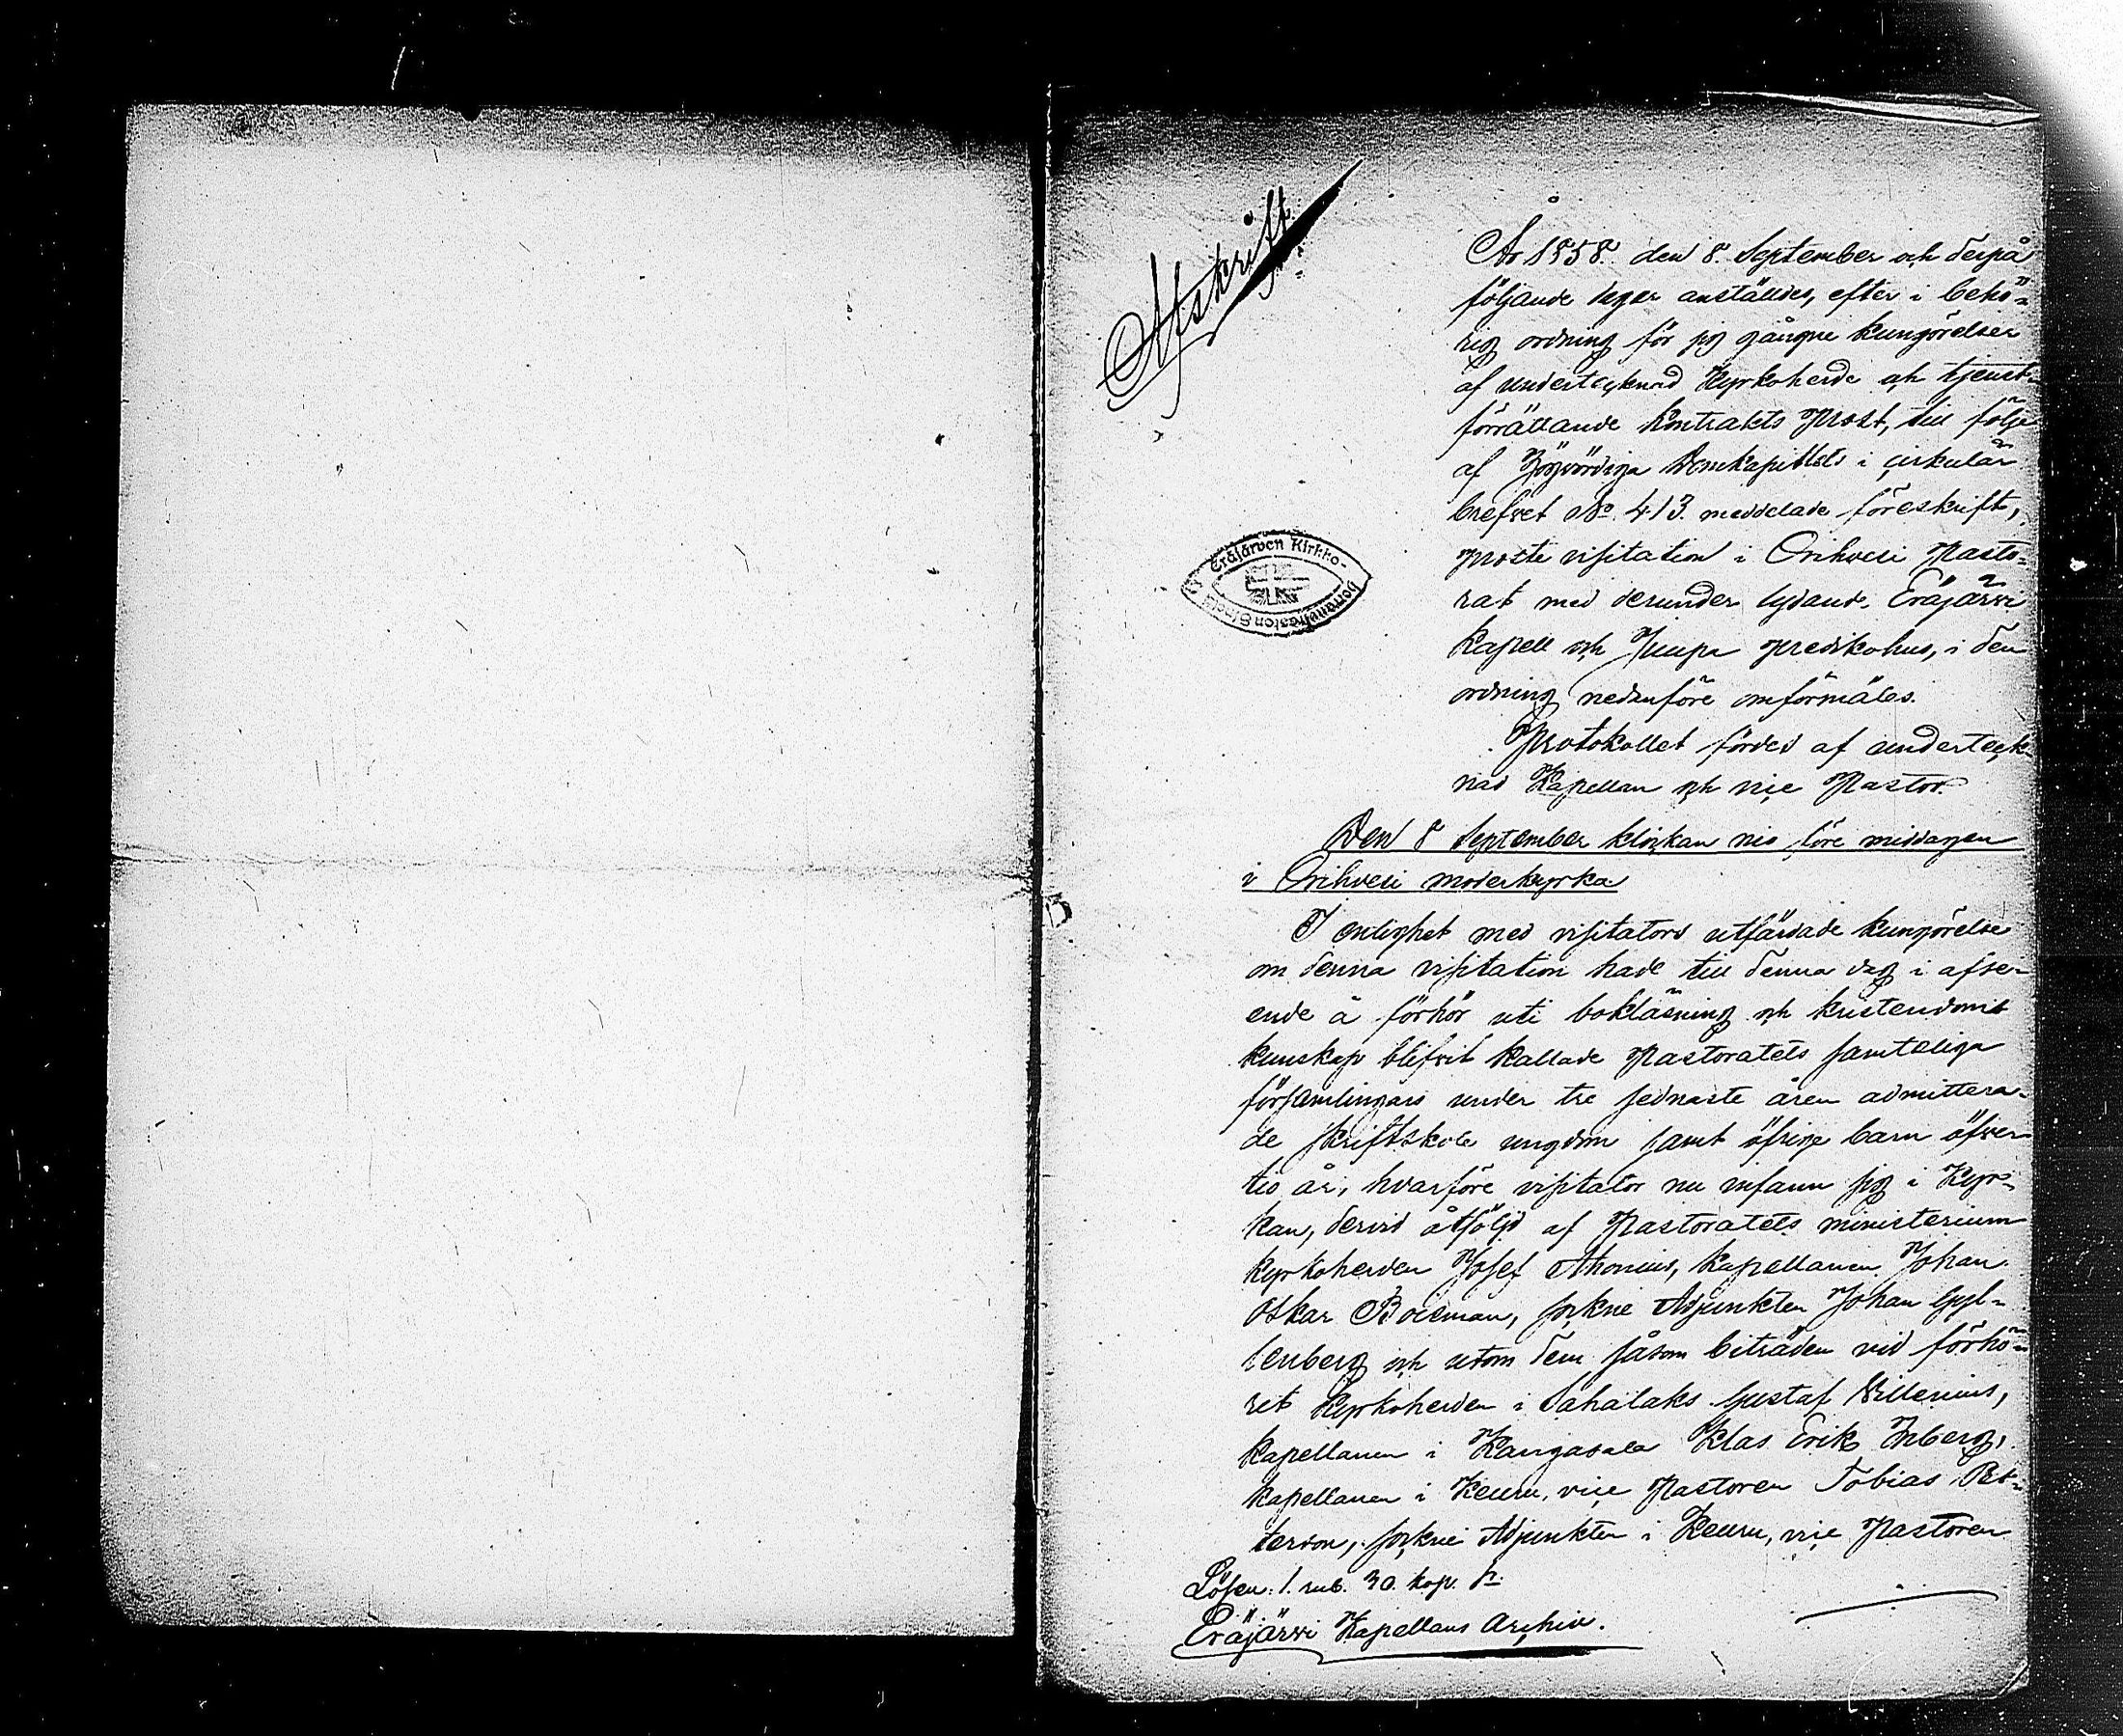 Afskrift
År 1858. den 8. September och derpå
följande dagar anställdes, efter i behö-
rig ordning för sig gångne kungörelser
af undertecknad Kyrkoherde och tjenst-
förrättande Kontrakts Prost, till följe
af Högvördiga Domkapitlets i cirkulär
brefvet No. 413. meddelade föreskrift,
Proste visitation i Orihvesi Pasto-
rat med derunder lydande Eräjärvi
Kapell och Juupa predikohus, i den
ordning nedanföre omförmäles.
Protokollet fördes af underteck
nad Kapellan och vice Pastor.
Eräjärven Kirkko-
Den 8 September klockan nio före middagen
i Orihvesi moderkyrka
I enlighet med visitators utfärdade kungörelse
om denna visitation hade till denna dag i afse-
ende å förhör uti bokläsning och kristendoms
kunskap blifvit kallade Pastoratets samteliga
församlingars under tre sednaste åren admittera-
de skriftskole ungdom samt öfrige barn öfver
tio år, hvarföre visitator nu infann sig i Kyr-
kan, dervid åtföljd af Pastoratets ministerium
kyrkoherden Josef Ahonius, kapellanen Johan
Oskar Boieman, sockne Adjunkten Johan Gyl-
lenberg och utom dem såsom biträden vid förhö-
ret Kyrkoherden i Sahalaks Gustaf Willenius,
kapellanen i Kangasala Klas Erik Inberg,
kapellanen i Keuru, vice Pastoren Tobias Pet-
terson, sockne Adjunkten i Keuru, vice Pastoren
Lösen: 1. rub. 30. kop. Sr.
Eräjärvi Kapellans Archiv.